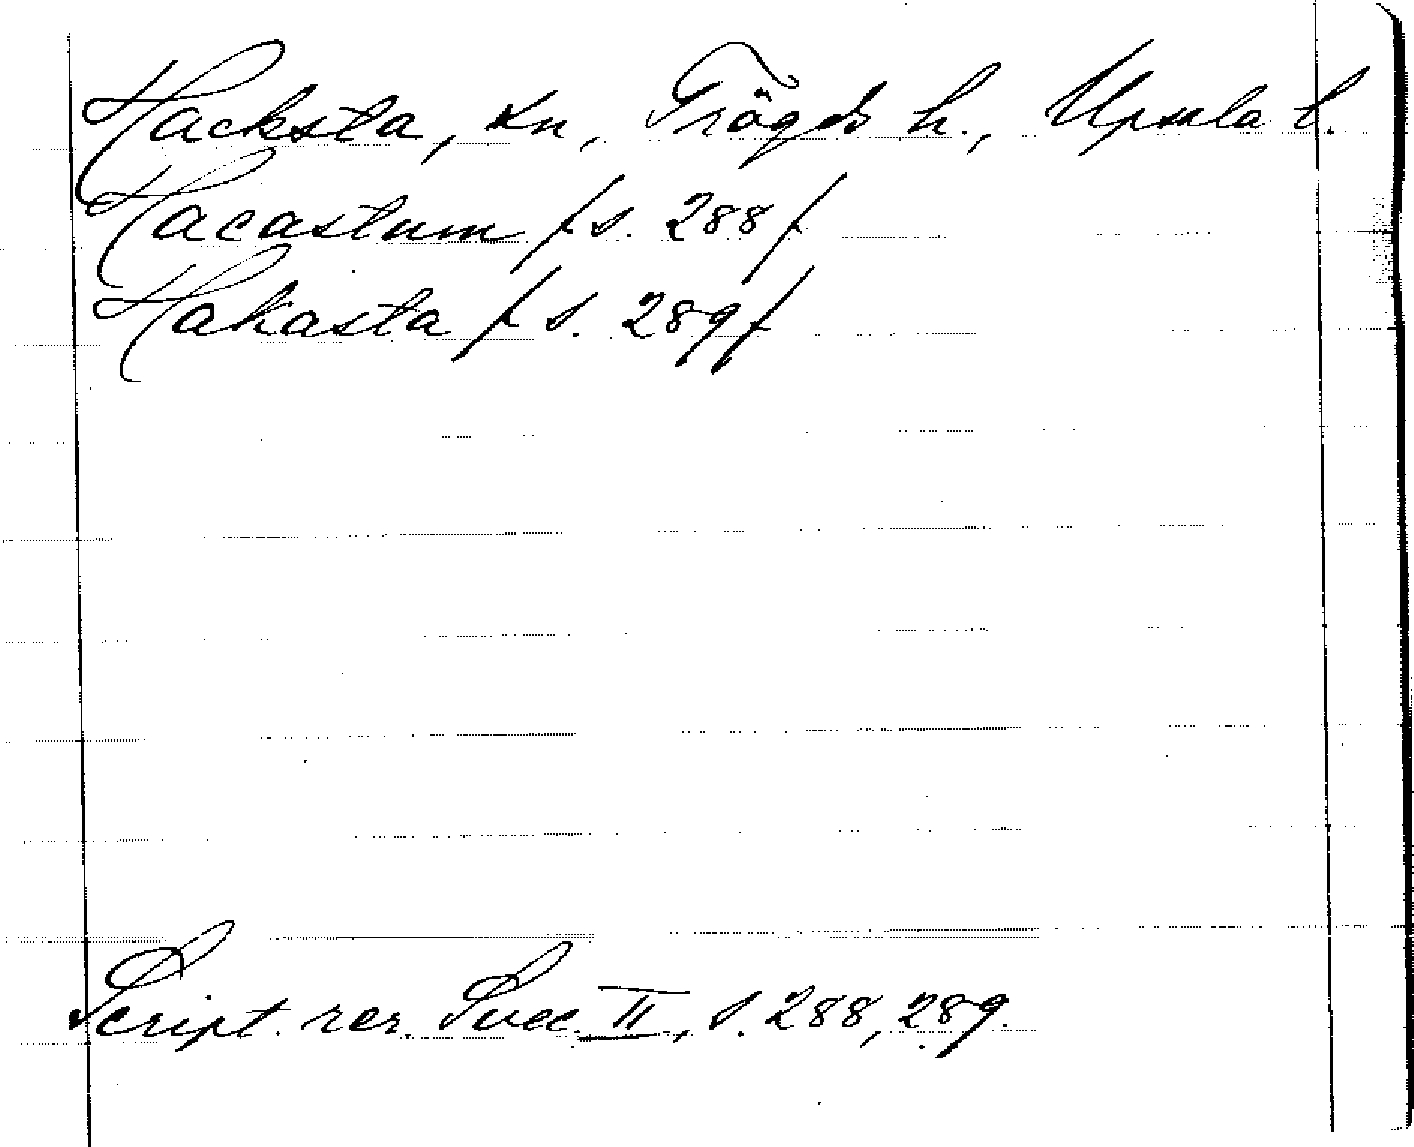 Hacksta, sn, Trögds h., Upsala l.
Hacastum /s. 288/
Hakasta /s. 289/
Script. rer. Svec. II, s. 288, 289.